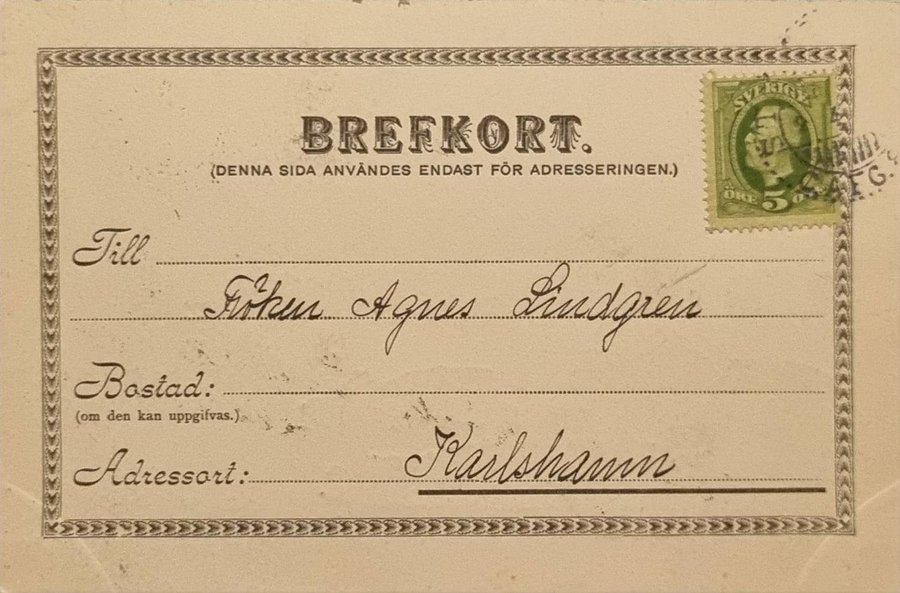 BREFKORT.
(DENNA SIDA ANVÄNDES ENDAST FÖR ADRESSERINGEN.)
SVERIGE
ÖRE 5
Till
Fröken Agnes Lindgren
Bostad:
(om den kan uppgifvas.)
Adressort: Karlshamn